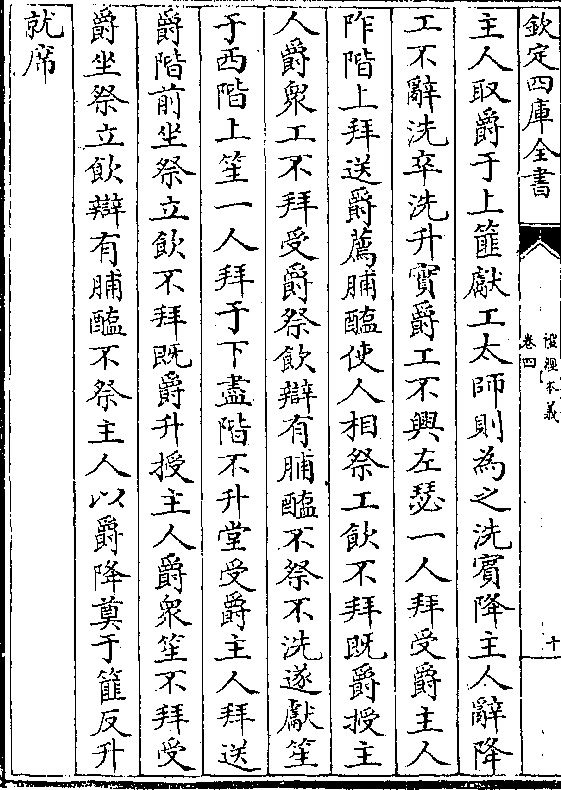 欽定四庫全書
禮經本義
卷四
十
主人取爵于上篚獻工太師則為之洗賓降主人辭降
工不辭洗卒洗升實爵工不興左瑟一人拜受爵主人
阼階上拜送爵薦脯醢使人相祭工飲不拜既爵授主
人爵衆工不拜受爵祭飲辯有脯醢不祭不洗遂獻笙
于西階上笙一人拜于下盡階不升堂受爵主人拜送
爵階前坐祭立飲不拜既爵升授主人爵衆笙不拜受
爵坐祭立飲辯有脯醢不祭主人以爵降奠于篚反升
就席